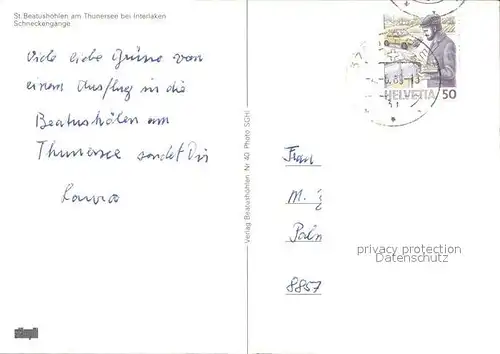 St. Beatushöhlen am Thunersee bei Interlaken
Schneckengänge
Viele liebe Grüsse von
einem Ausflug in die
Beatushölen am
Thunersee sendet Dir
Verlag Beatushöhlen, Nr 40 Photo SGH
HELVETIA 50
Frau
M.
8857
privacy protection
Datenschutz